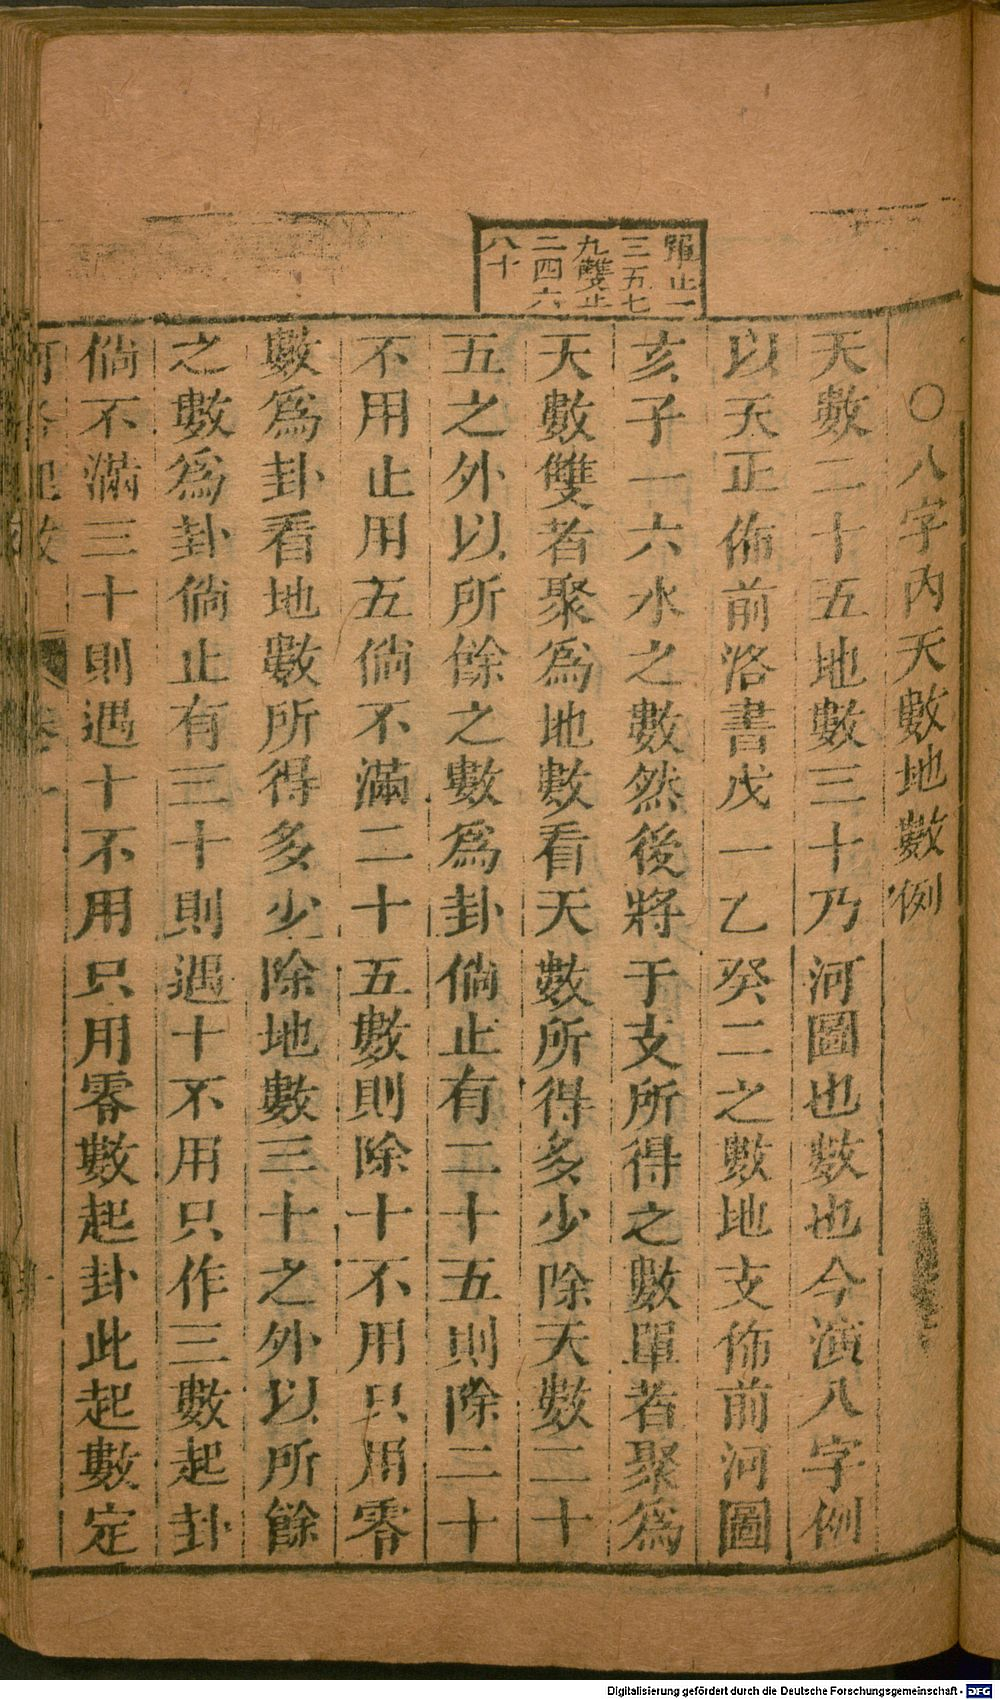 ○八字內天數地數例
天數二十五地數三十乃河圖也數也今演八字例
以天正佈前洛書戊一乙癸二之數地支佈前河圖
亥子一六水之數然後將于支所得之數單者聚爲
天數雙者聚爲地數看天數所得多少除天數二十
五之外以所餘之數爲卦倘止有二十五則除二十
不用止用五倘不滿二十五數則除十不用只用零
數爲卦看地數所得多少除地數三十之外以所餘
之數爲卦倘止有三十則遇十不用只作三數起卦
倘不滿三十則遇十不用只用零數起卦此起數定
單止一
三五七
九雙止
二四六
八十
Digitalisierung gefördert durch die Deutsche Forschungsgemeinschaft - DFG